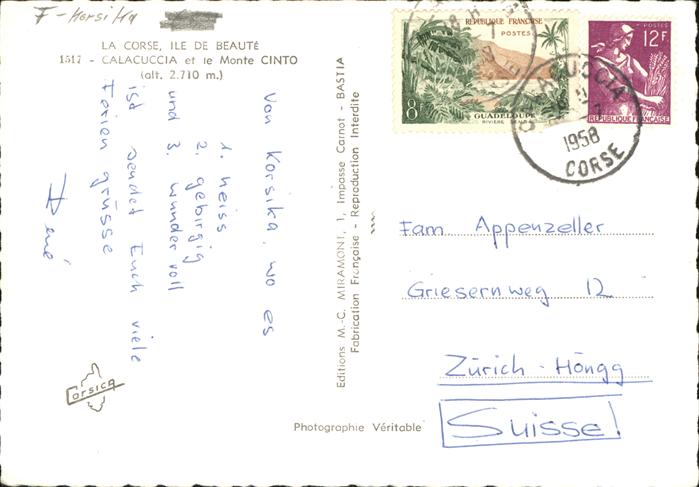 F-Korsika
LA CORSE, ILE DE BEAUTÉ
1517 - CALACUCCIA et le Monte CINTO
(alt. 2.710 m.)
Von Korsika, wo es
1. heiss
2. gebirgig
und 3. wundervoll
ist sendet Euch viele
Feriengrüsse
René
Corsica
Editions M.-C. MIRAMONT, 1, Impasse Carnot - BASTIA
Fabrication Française - Reproduction Interdite
Photographie Véritable
REPUBLIQUE FRANÇAISE
POSTES
8F
GUADELOUPE
RIVIÈRE SENS
POSTES
12F
REPUBLIQUE FRANÇAISE
CALACUCCIA
1958
CORSE
Fam. Appenzeller
Griesernweg 12
Zürich-Höngg
Suisse!